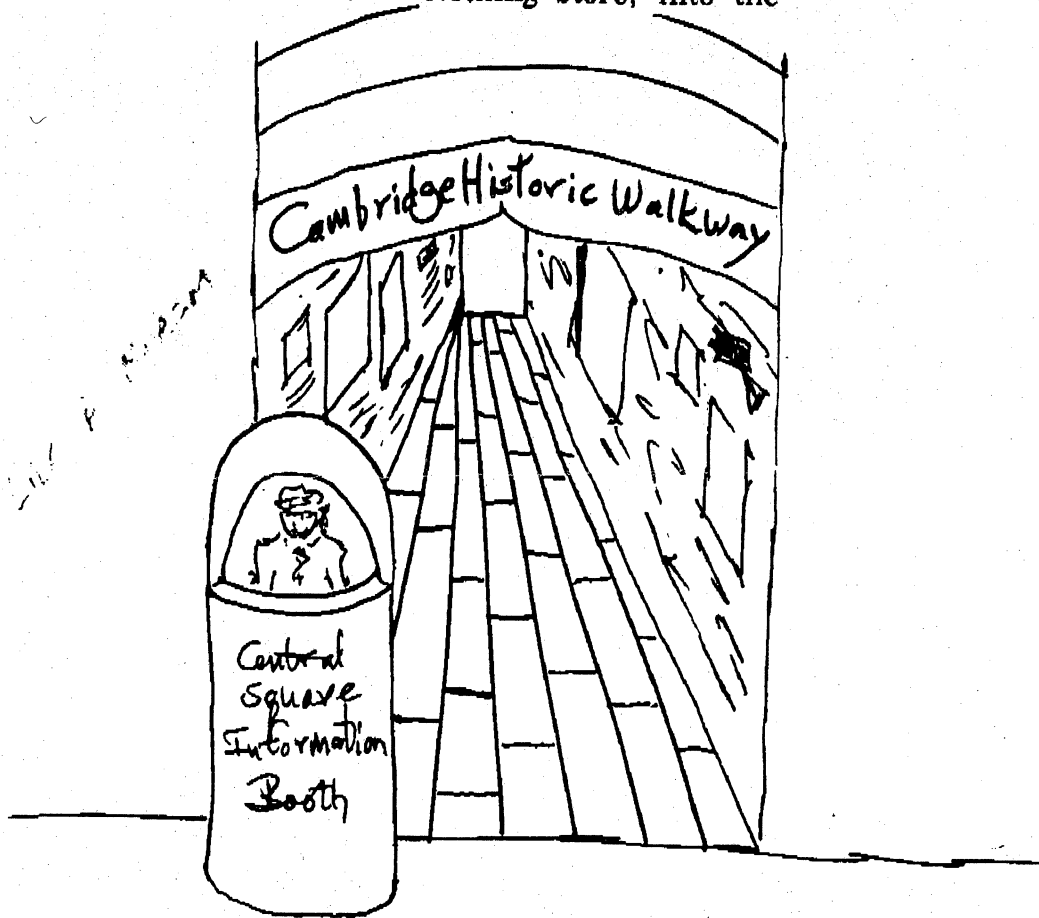 store, into the
Cambridge Historic Walkway
Central
Square
Information
Booth